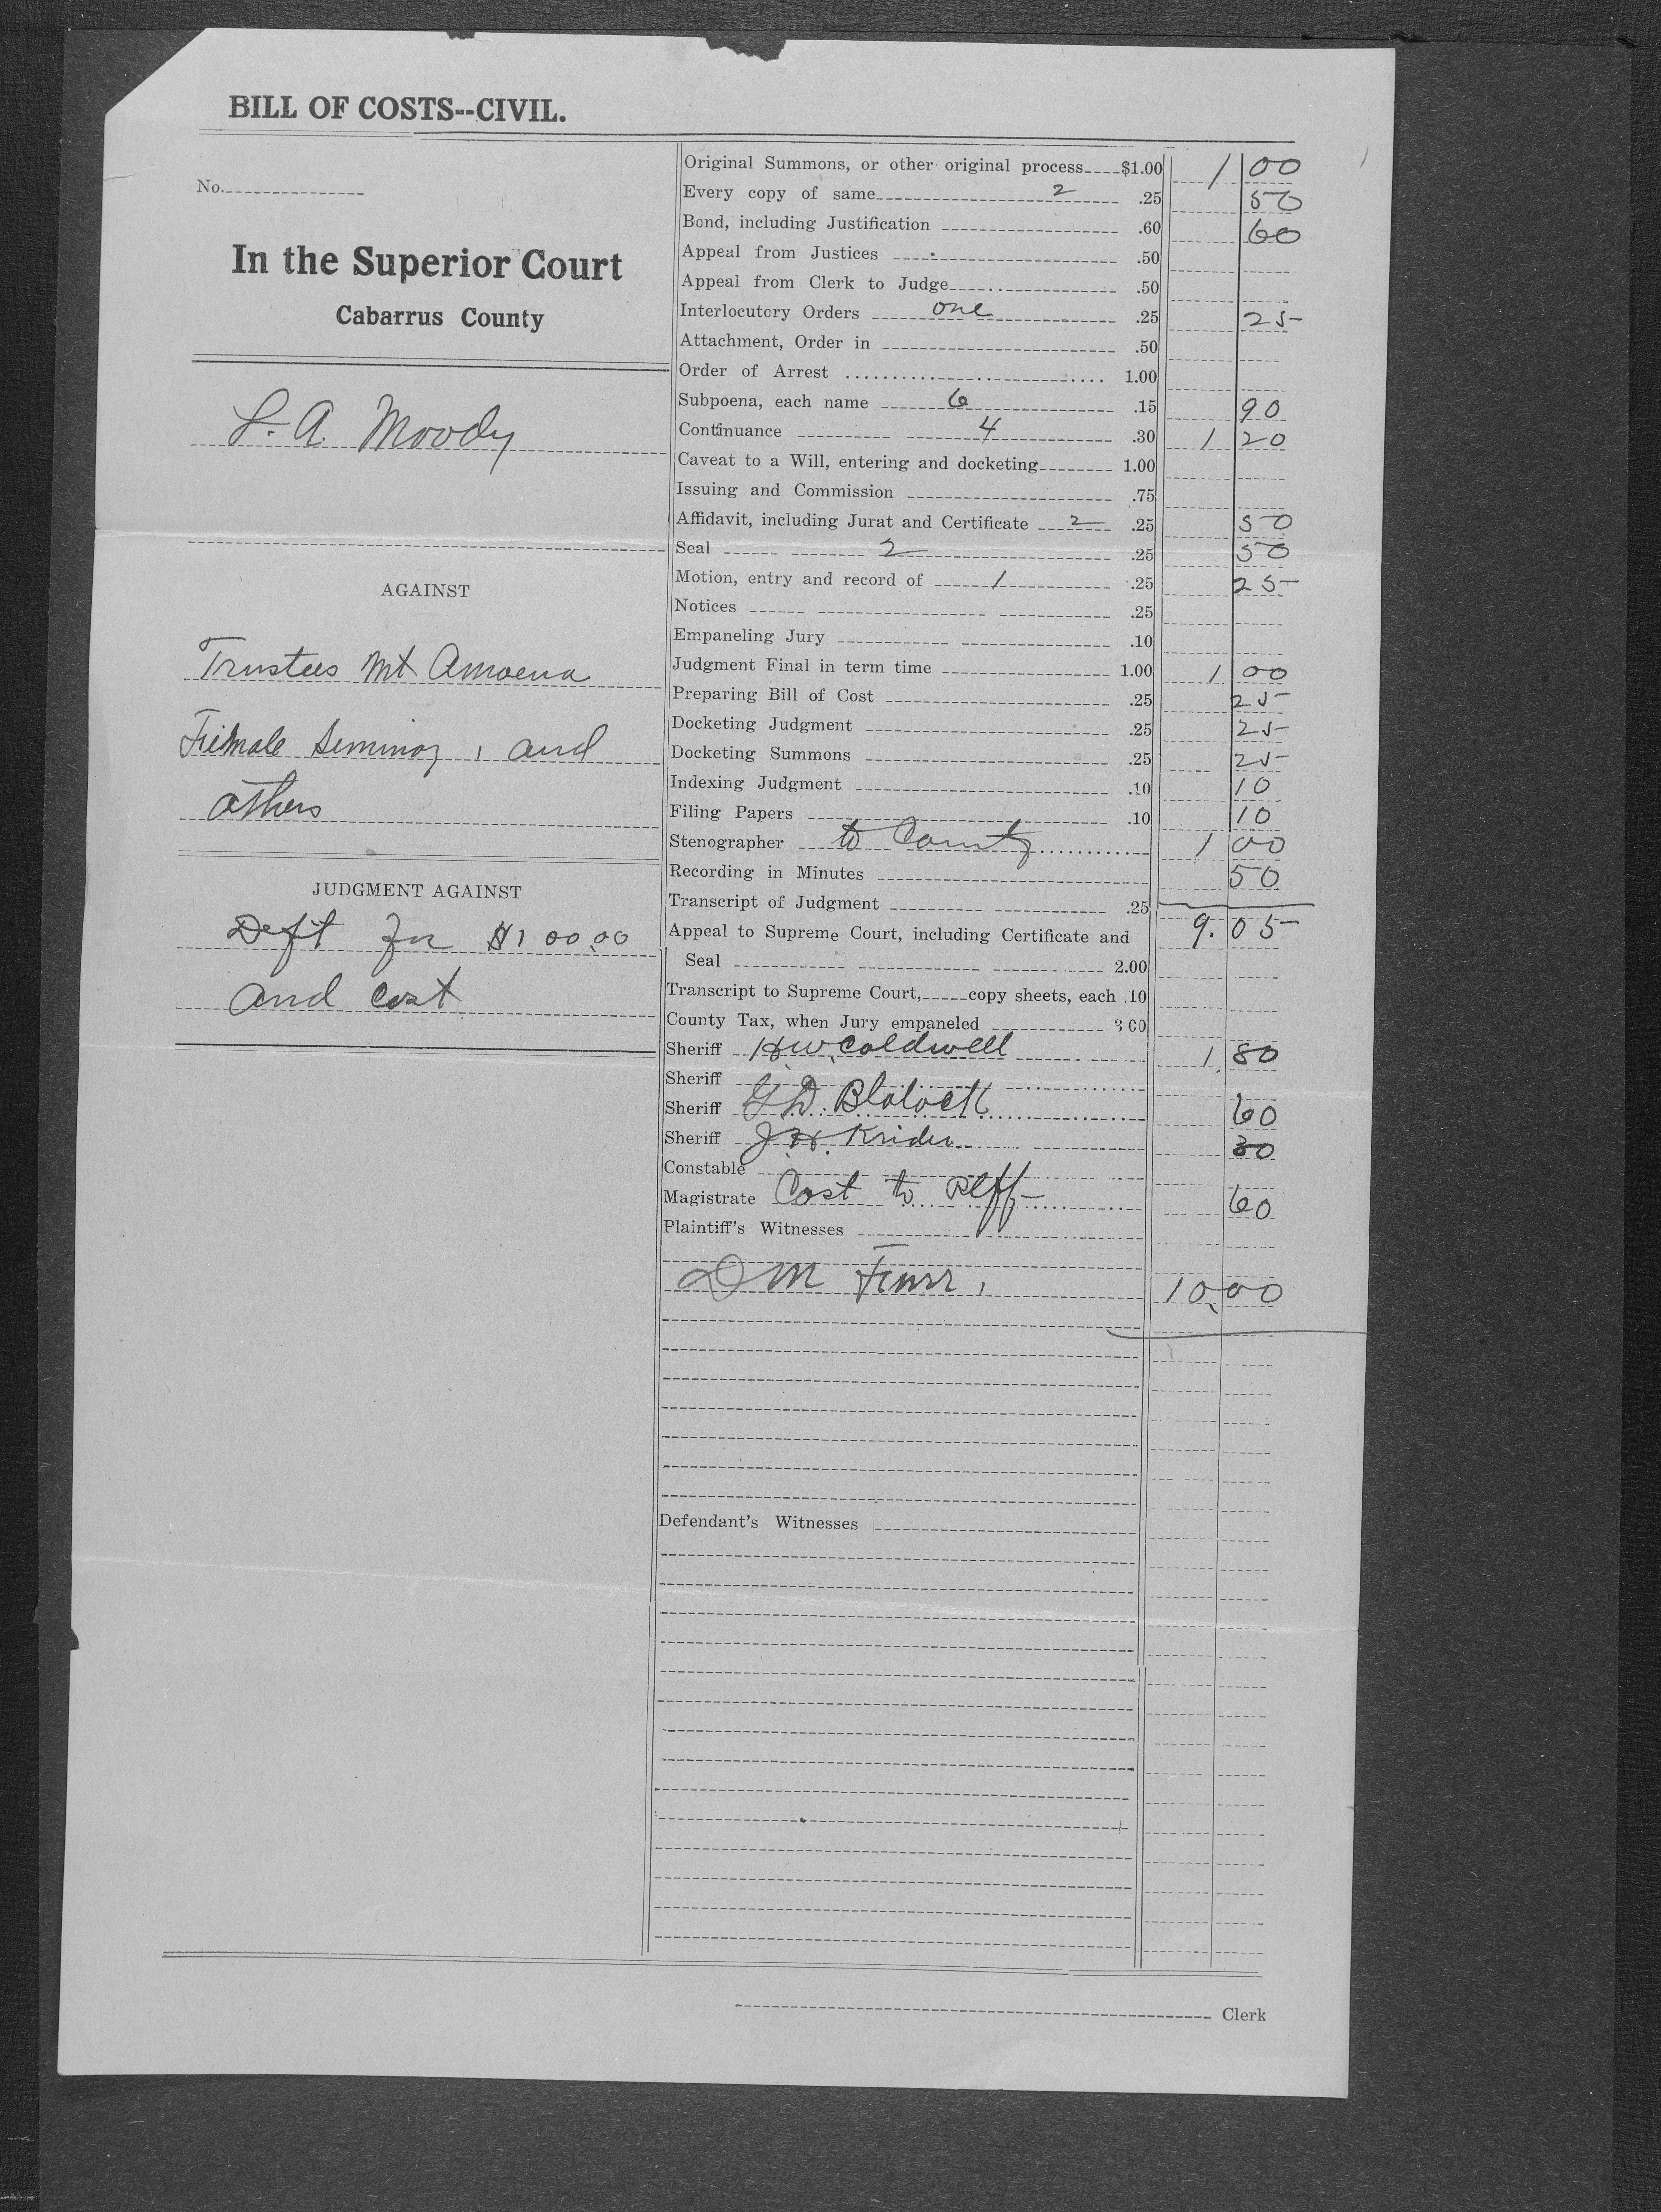 BILL OF COSTS--CIVIL.
No.
In the Superior Court
Cabarrus County
L. A. Moody
AGAINST
Trustees Mt Amoena
Female Seminay, and
others
JUDGMENT AGAINST
Deft for $100.00
and Cost
Original Summons, or other original process $1.00 1 00
Every copy of same 2 .25 50
Bond, including Justification .60 60
Appeal from Justices .50
Appeal from Clerk to Judge .50
Interlocutory Orders one .25 25
Attachment, Order in .50
Order of Arrest 1.00
Subpoena, each name 6 .15 90
Continuance 4 .30 1 20
Caveat to a Will, entering and docketing 1.00
Issuing and Commission .75
Affidavit, including Jurat and Certificate 2 .25 50
Seal 2 .25 50
Motion, entry and record of 1 .25 25
Notices .25
Empaneling Jury .10
Judgment Final in term time 1.00 1 00
Preparing Bill of Cost .25 25
Docketing Judgment .25 25
Docketing Summons .25 25
Indexing Judgment .10 10
Filing Papers .10 10
Stenographer to County 1 00
Recording in Minutes 50
Transcript of Judgment .25
9.05
Appeal to Supreme Court, including Certificate and
Seal 2.00
Transcript to Supreme Court, copy sheets, each .10
County Tax, when Jury empaneled 3 00
Sheriff H W. Caldwell 1.80
Sheriff
Sheriff G D. Blalock 60
Sheriff J H. Krider 30
Constable
Magistrate Cost to Plff 60
Plaintiff's Witnesses
D M Furr, 10.00
Defendant's Witnesses
Clerk